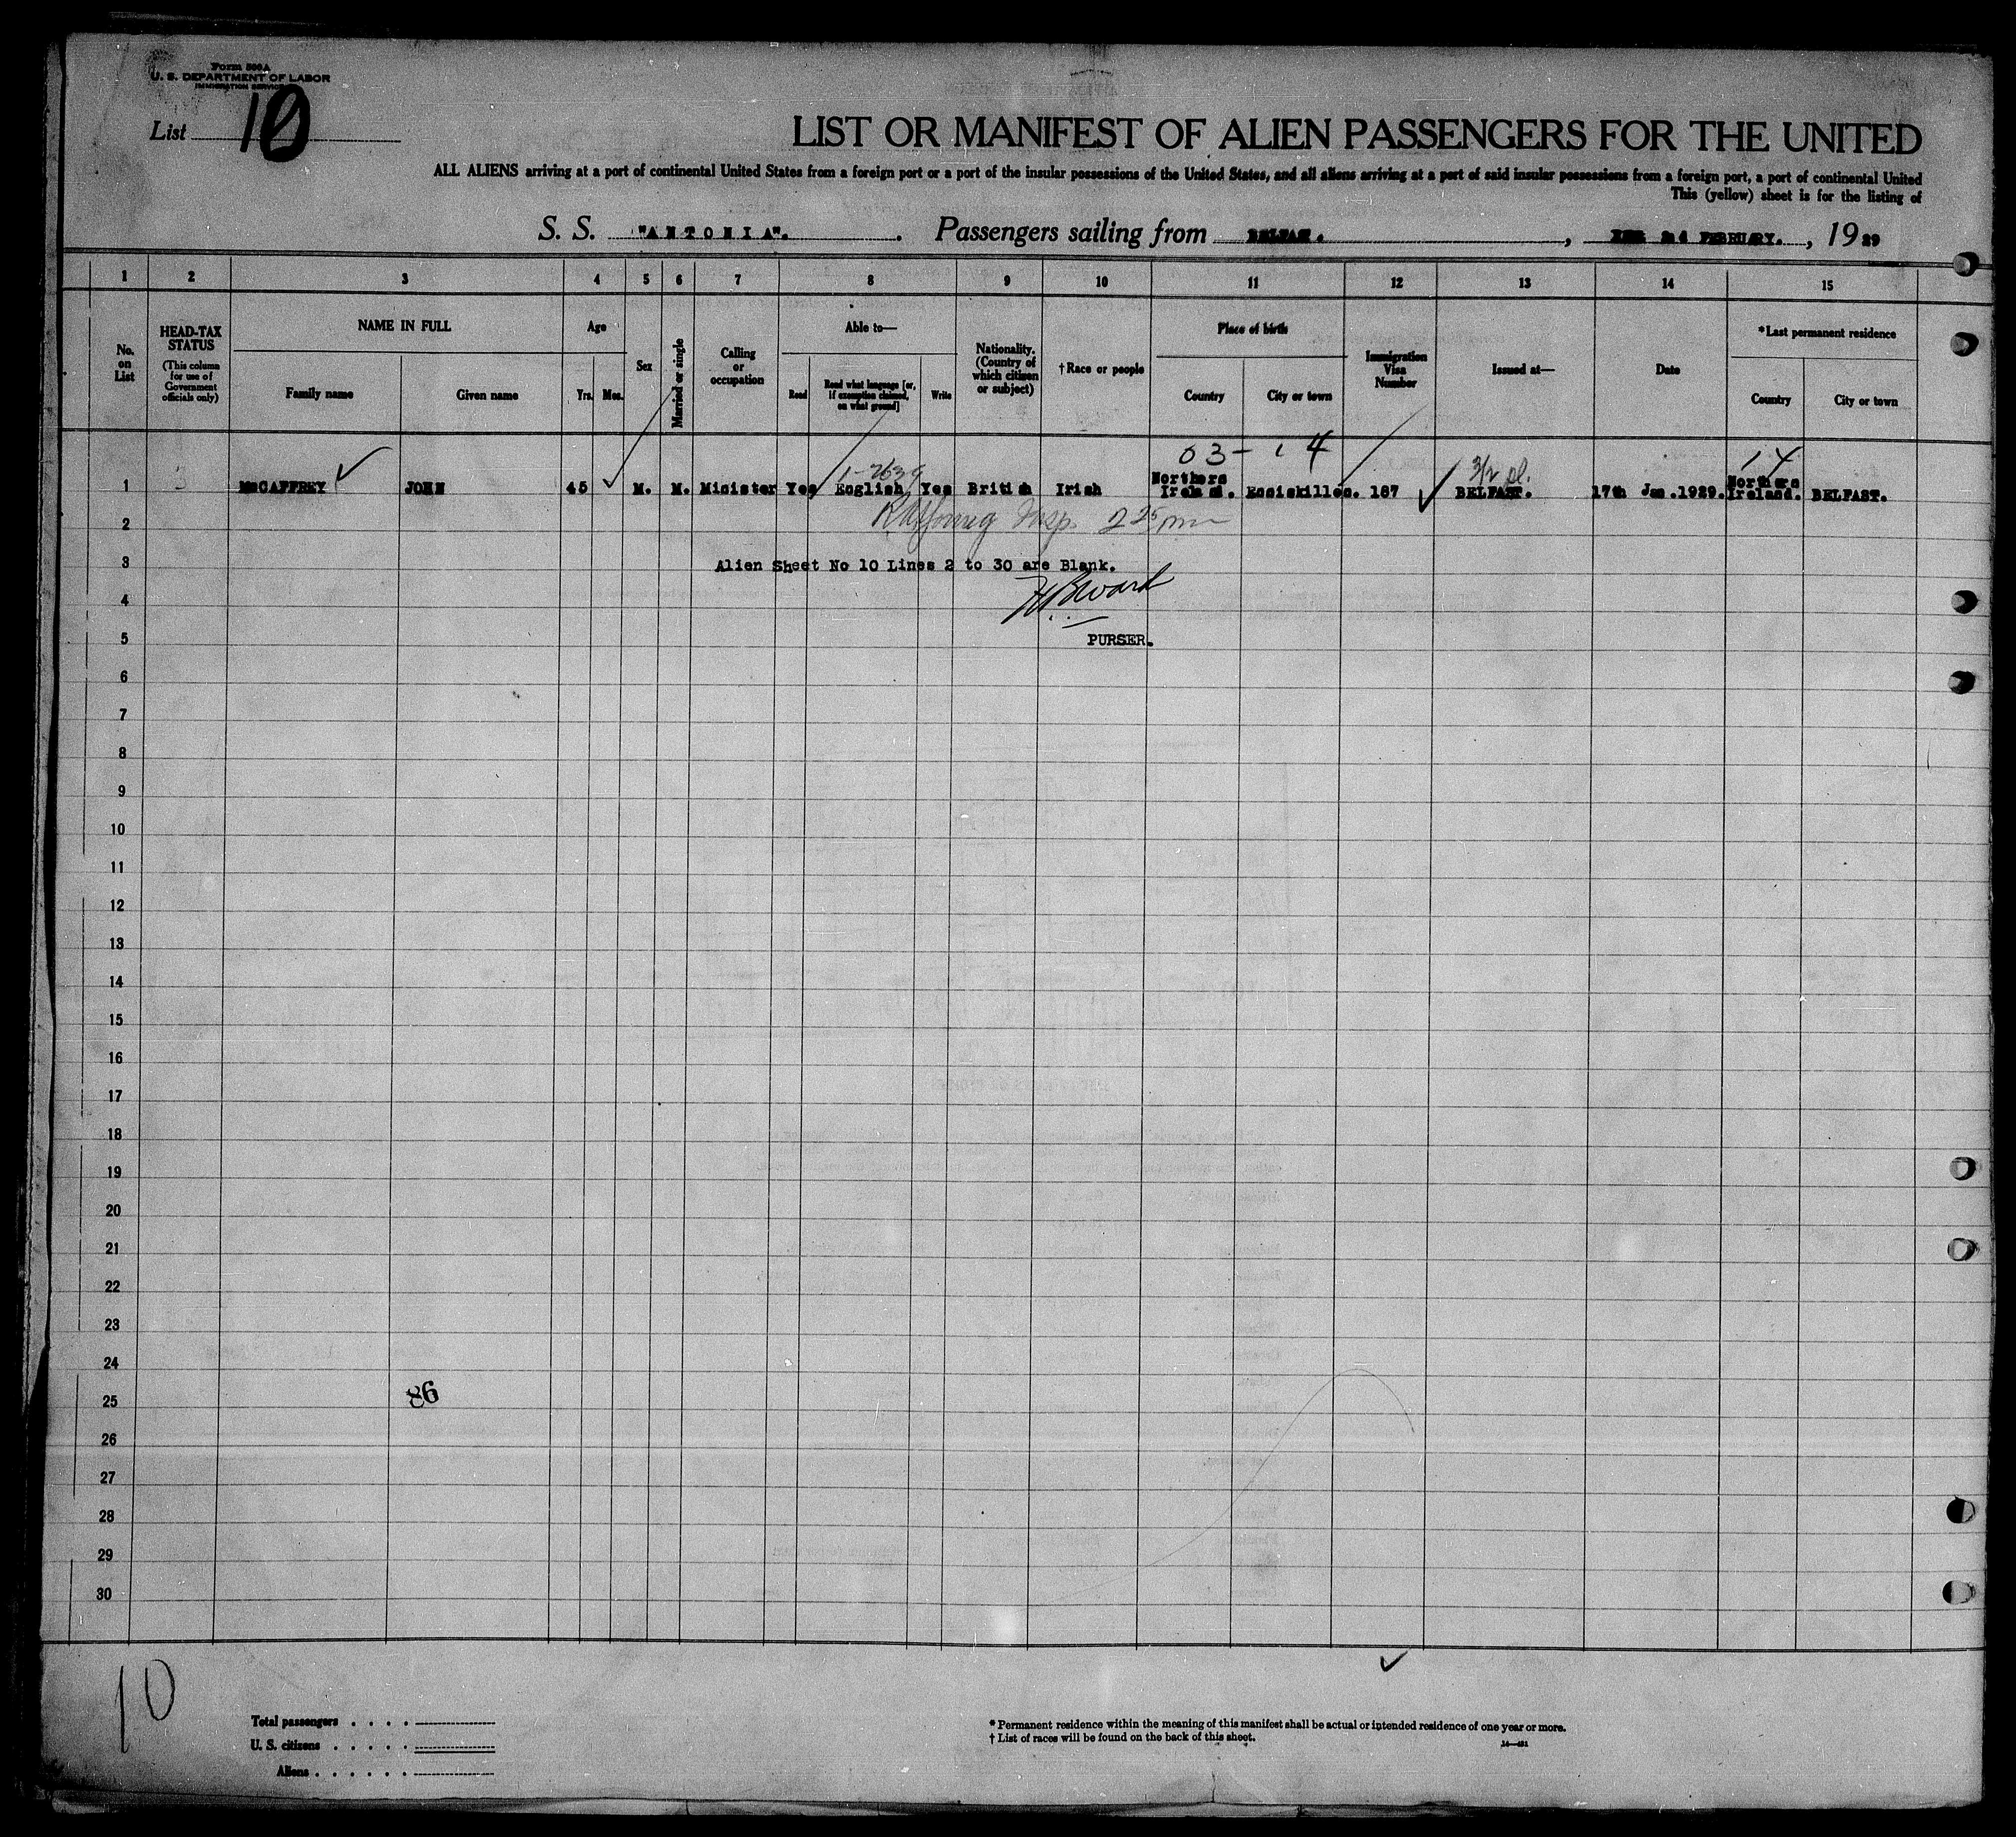 Form 500A
U. S. DEPARTMENT OF LABOR
IMMIGRATION SERVICE
List 10
LIST OR MANIFEST OF ALIEN PASSENGERS FOR THE UNITED
ALL ALIENS arriving at a port of continental United States from a foreign port or a port of the insular possessions of the United States, and all aliens arriving at a port of said insular possessions from a foreign port, a port of continental United
This (yellow) sheet is for the listing of
S. S. "ANTONIA". Passengers sailing from BELFAST. , 2nd FEBRUARY. , 1929
1 2 3 4 5 6 7 8 9 10 11 12 13 14 15
No. on List
HEAD-TAX STATUS (This column for use of Government officials only)
NAME IN FULL
Family name
Given name
Age
Yrs. Mos.
Sex
Married or single
Calling or occupation
Able to—
Read
Read what language [or, if exemption claimed, on what ground]
Write
Nationality. (Country of which citizen or subject)
†Race or people
Place of birth
Country
City or town
Immigration Visa Number
Issued at—
Date
*Last permanent residence
Country
City or town
03- 14
14
3/2
1 McCAFFREY JOHN 45 M. M. Minister Yes English Yes British Irish Northern Ireland. Enniskillen. 187 BELFAST. 17th Jan. 1929. Northern Ireland. BELFAST.
2 Insp. 2 25 pm
3 Alien Sheet No 10 Lines 2 to 30 are Blank.
4
5 PURSER.
6
7
8
9
10
11
12
13
14
15
16
17
18
19
20
21
22
23
24
25 86
26
27
28
29
30
10
Total passengers . . . .
U. S. citizens . . . . .
Aliens . . . . . .
* Permanent residence within the meaning of this manifest shall be actual or intended residence of one year or more.
† List of races will be found on the back of this sheet.
14—421